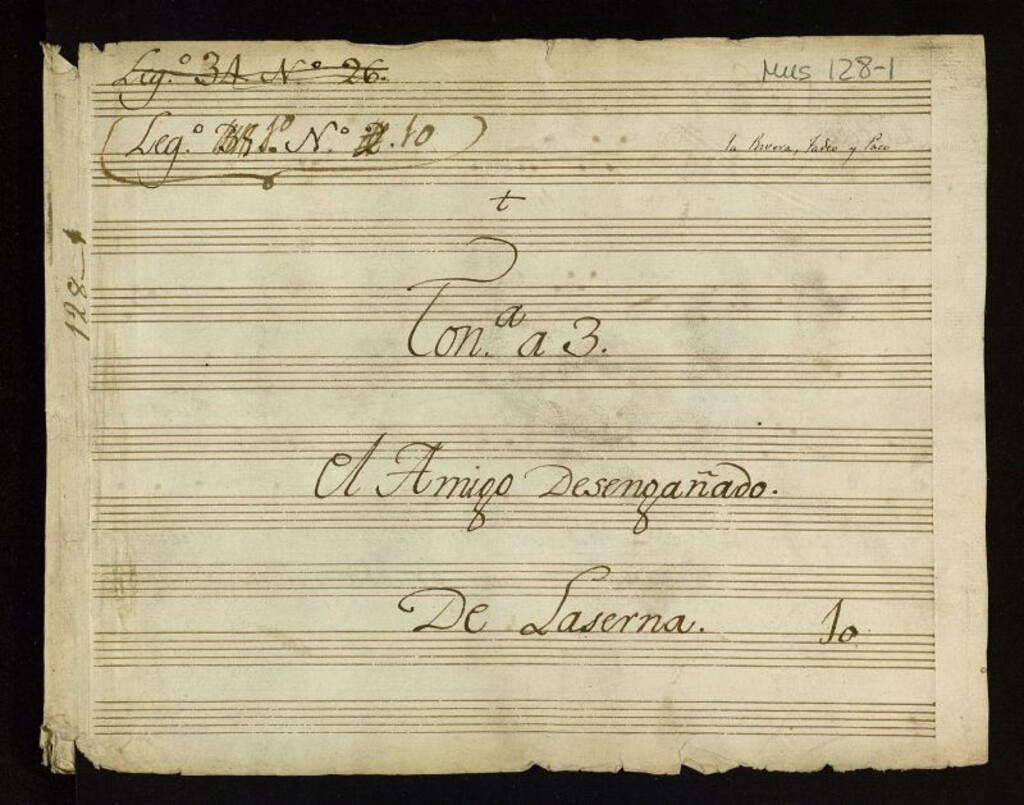 Leg.º 34 Nº 26.
Mus 128-1
Leg.º 1º Nº .10
la Rivera, Tadeo y Paco
t
128-1
Ton.ª a 3.
El Amigo Desengañado.
De Laserna.
10